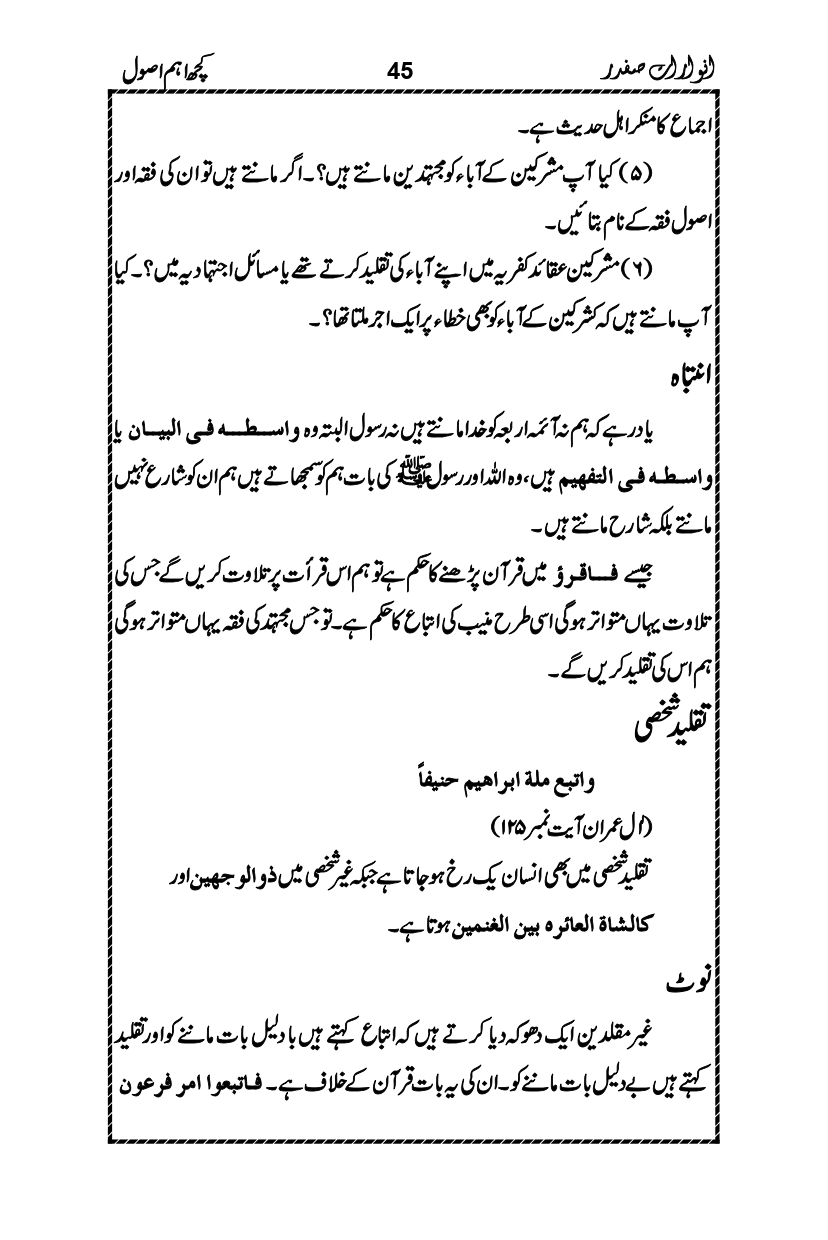 انوارات صفدر 45 کچھ اہم اصول
اجماع کا منکر اہل حدیث ہے۔
(۵) کیا آپ مشرکین کے آباء کو مجتہدین مانتے ہیں؟۔ اگر مانتے ہیں تو ان کی فقہ اور
اصول فقہ کے نام بتائیں۔
(۶) مشرکین عقائد کفریہ میں اپنے آباء کی تقلید کرتے تھے یا مسائل اجتہادیہ میں؟۔ کیا
آپ مانتے ہیں کہ کشرکین کے آباء کو بھی خطاء پر ایک اجر ملتا تھا؟۔
انتباہ
یاد رہے کہ ہم نہ آئمہ اربعہ کو خدا مانتے ہیں نہ رسول البتہ وہ واسطہ فی البیان یا
واسطہ فی التفھیم ہیں، وہ اللہ اور رسول ﷺ کی بات ہم کو سمجھاتے ہیں ہم ان کو شارع نہیں
مانتے بلکہ شارح مانتے ہیں۔
جیسے فاقرؤ میں قرآن پڑھنے کا حکم ہے تو ہم اس قرأت پر تلاوت کریں گے جس کی
تلاوت یہاں متواتر ہوگی اسی طرح منیب کی اتباع کا حکم ہے۔ تو جس مجتہد کی فقہ یہاں متواتر ہوگی
ہم اس کی تقلید کریں گے۔
تقلید شخصی
واتبع ملة ابراھیم حنیفاً
(اٰل عمران آیت نمبر ۱۲۵)
تقلید شخصی میں بھی انسان یک رخ ہو جاتا ہے جبکہ غیر شخصی میں ذوالوجھین اور
کالشاة العائرہ بین الغنمین ہوتا ہے۔
نوٹ
غیر مقلدین ایک دھوکہ دیا کرتے ہیں کہ اتباع کہتے ہیں با دلیل بات ماننے کو اور تقلید
کہتے ہیں بے دلیل بات ماننے کو۔ ان کی یہ بات قرآن کے خلاف ہے۔ فاتبعوا امر فرعون